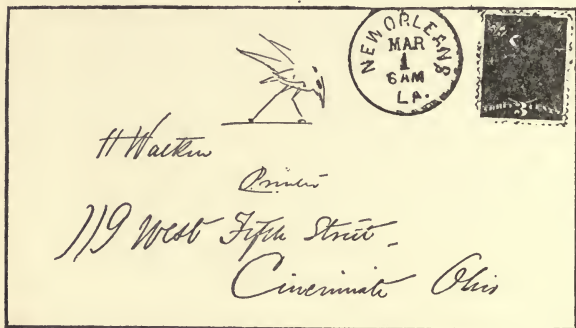 NEW ORLEANS
MAR
1
6 AM
LA.
3
H Watkin
Printer
119 West Fifth Street
Cincinnati Ohio